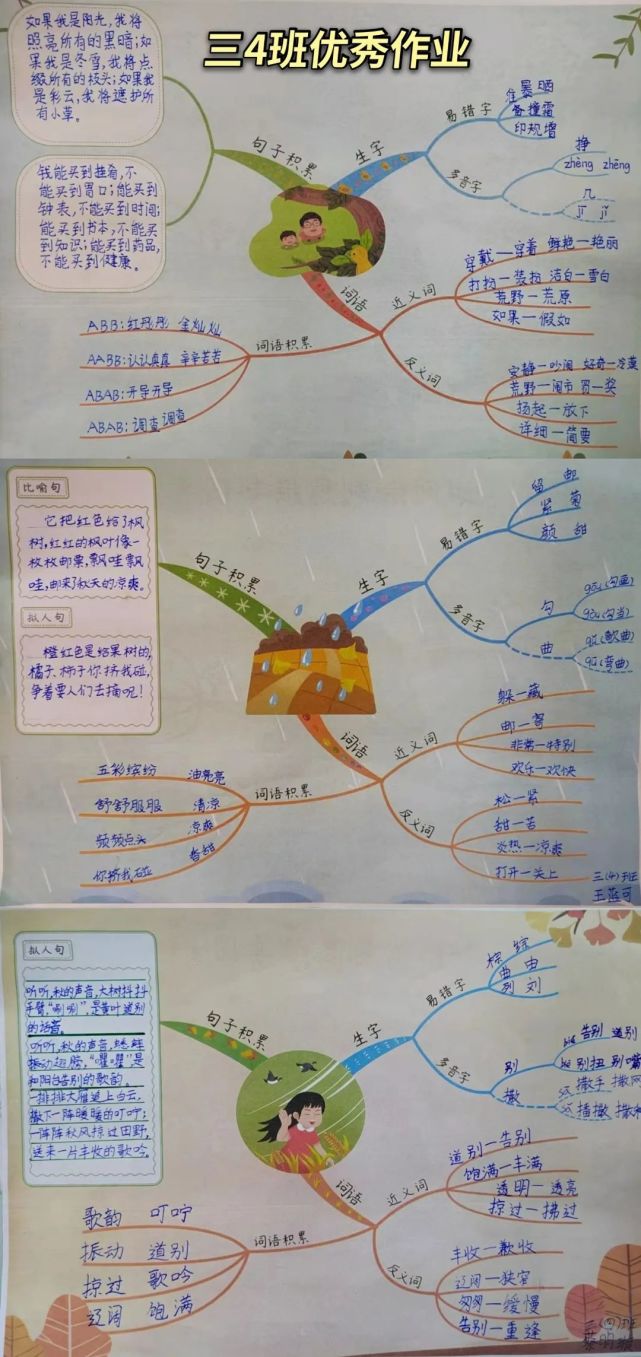 三4班优秀作业
如果我是阳光,我将
照亮所有的黑暗;如
果我是冬雪,我将点
缀所有的枝头;如果我
是彩云,我将遮护所
有小草。
钱能买到佳肴,不
能买到胃口;能买到
钟表,不能买到时间;
能买到书本,不能买
到知识;能买到药品,
不能买到健康。
句子积累
生字
易错字
暴晒
备撞霜
印规增
多音字
挣
zhèng zhēng
几
jī jǐ
词语
近义词
穿戴—穿着 鲜艳—艳丽
打扮—装扮 洁白—雪白
荒野—荒原
如果—假如
反义词
安静—吵闹 好奇—冷漠
荒野—闹市 罚—奖
扬起—放下
详细—简要
词语积累
ABB:红彤彤 金灿灿
AABB:认认真真 辛辛苦苦
ABAB:开导开导
ABAB:调查调查
比喻句
它把红色给了枫
树,红红的枫叶像一
枚枚邮票,飘哇飘
哇,邮来了秋天的凉爽。
拟人句
橙红色是给果树的,
橘子、柿子你挤我碰,
争着要人们去摘呢!
句子积累
生字
易错字
留 邮
紧 菊
颜 甜
多音字
勾
gōu(勾画)
gòu(勾当)
曲
qǔ(歌曲)
qū(弯曲)
词语
近义词
躲—藏
邮—寄
非常—特别
欢乐—欢快
反义词
松—紧
甜—苦
炎热—凉爽
打开—关上
词语积累
五彩缤纷 油亮亮
舒舒服服 清凉
频频点头 凉爽
你挤我碰 香甜
三(4)班
王蓝可
拟人句
听听,秋的声音,大树抖抖
手臂,“唰唰”,是黄叶道别
的话音。
听听,秋的声音,蟋蟀
振动翅膀,“㘗㘗”是
和阳台告别的歌韵。
一排排大雁追上白云,
撒下一阵暖暖的叮咛;
一阵阵秋风掠过田野,
送来一片丰收的歌吟。
句子积累
生字
易错字
棕 综
曲 由
列 刘
多音字
别
告别 道别
别扭 别嘴
撒
撒手 撒网
播撒
词语
近义词
道别—告别
饱满—丰满
透明—透亮
掠过—拂过
反义词
丰收—歉收
辽阔—狭窄
匆匆—缓慢
告别—重逢
词语积累
歌韵 叮咛
振动 道别
掠过 歌吟
辽阔 饱满
三(四)班